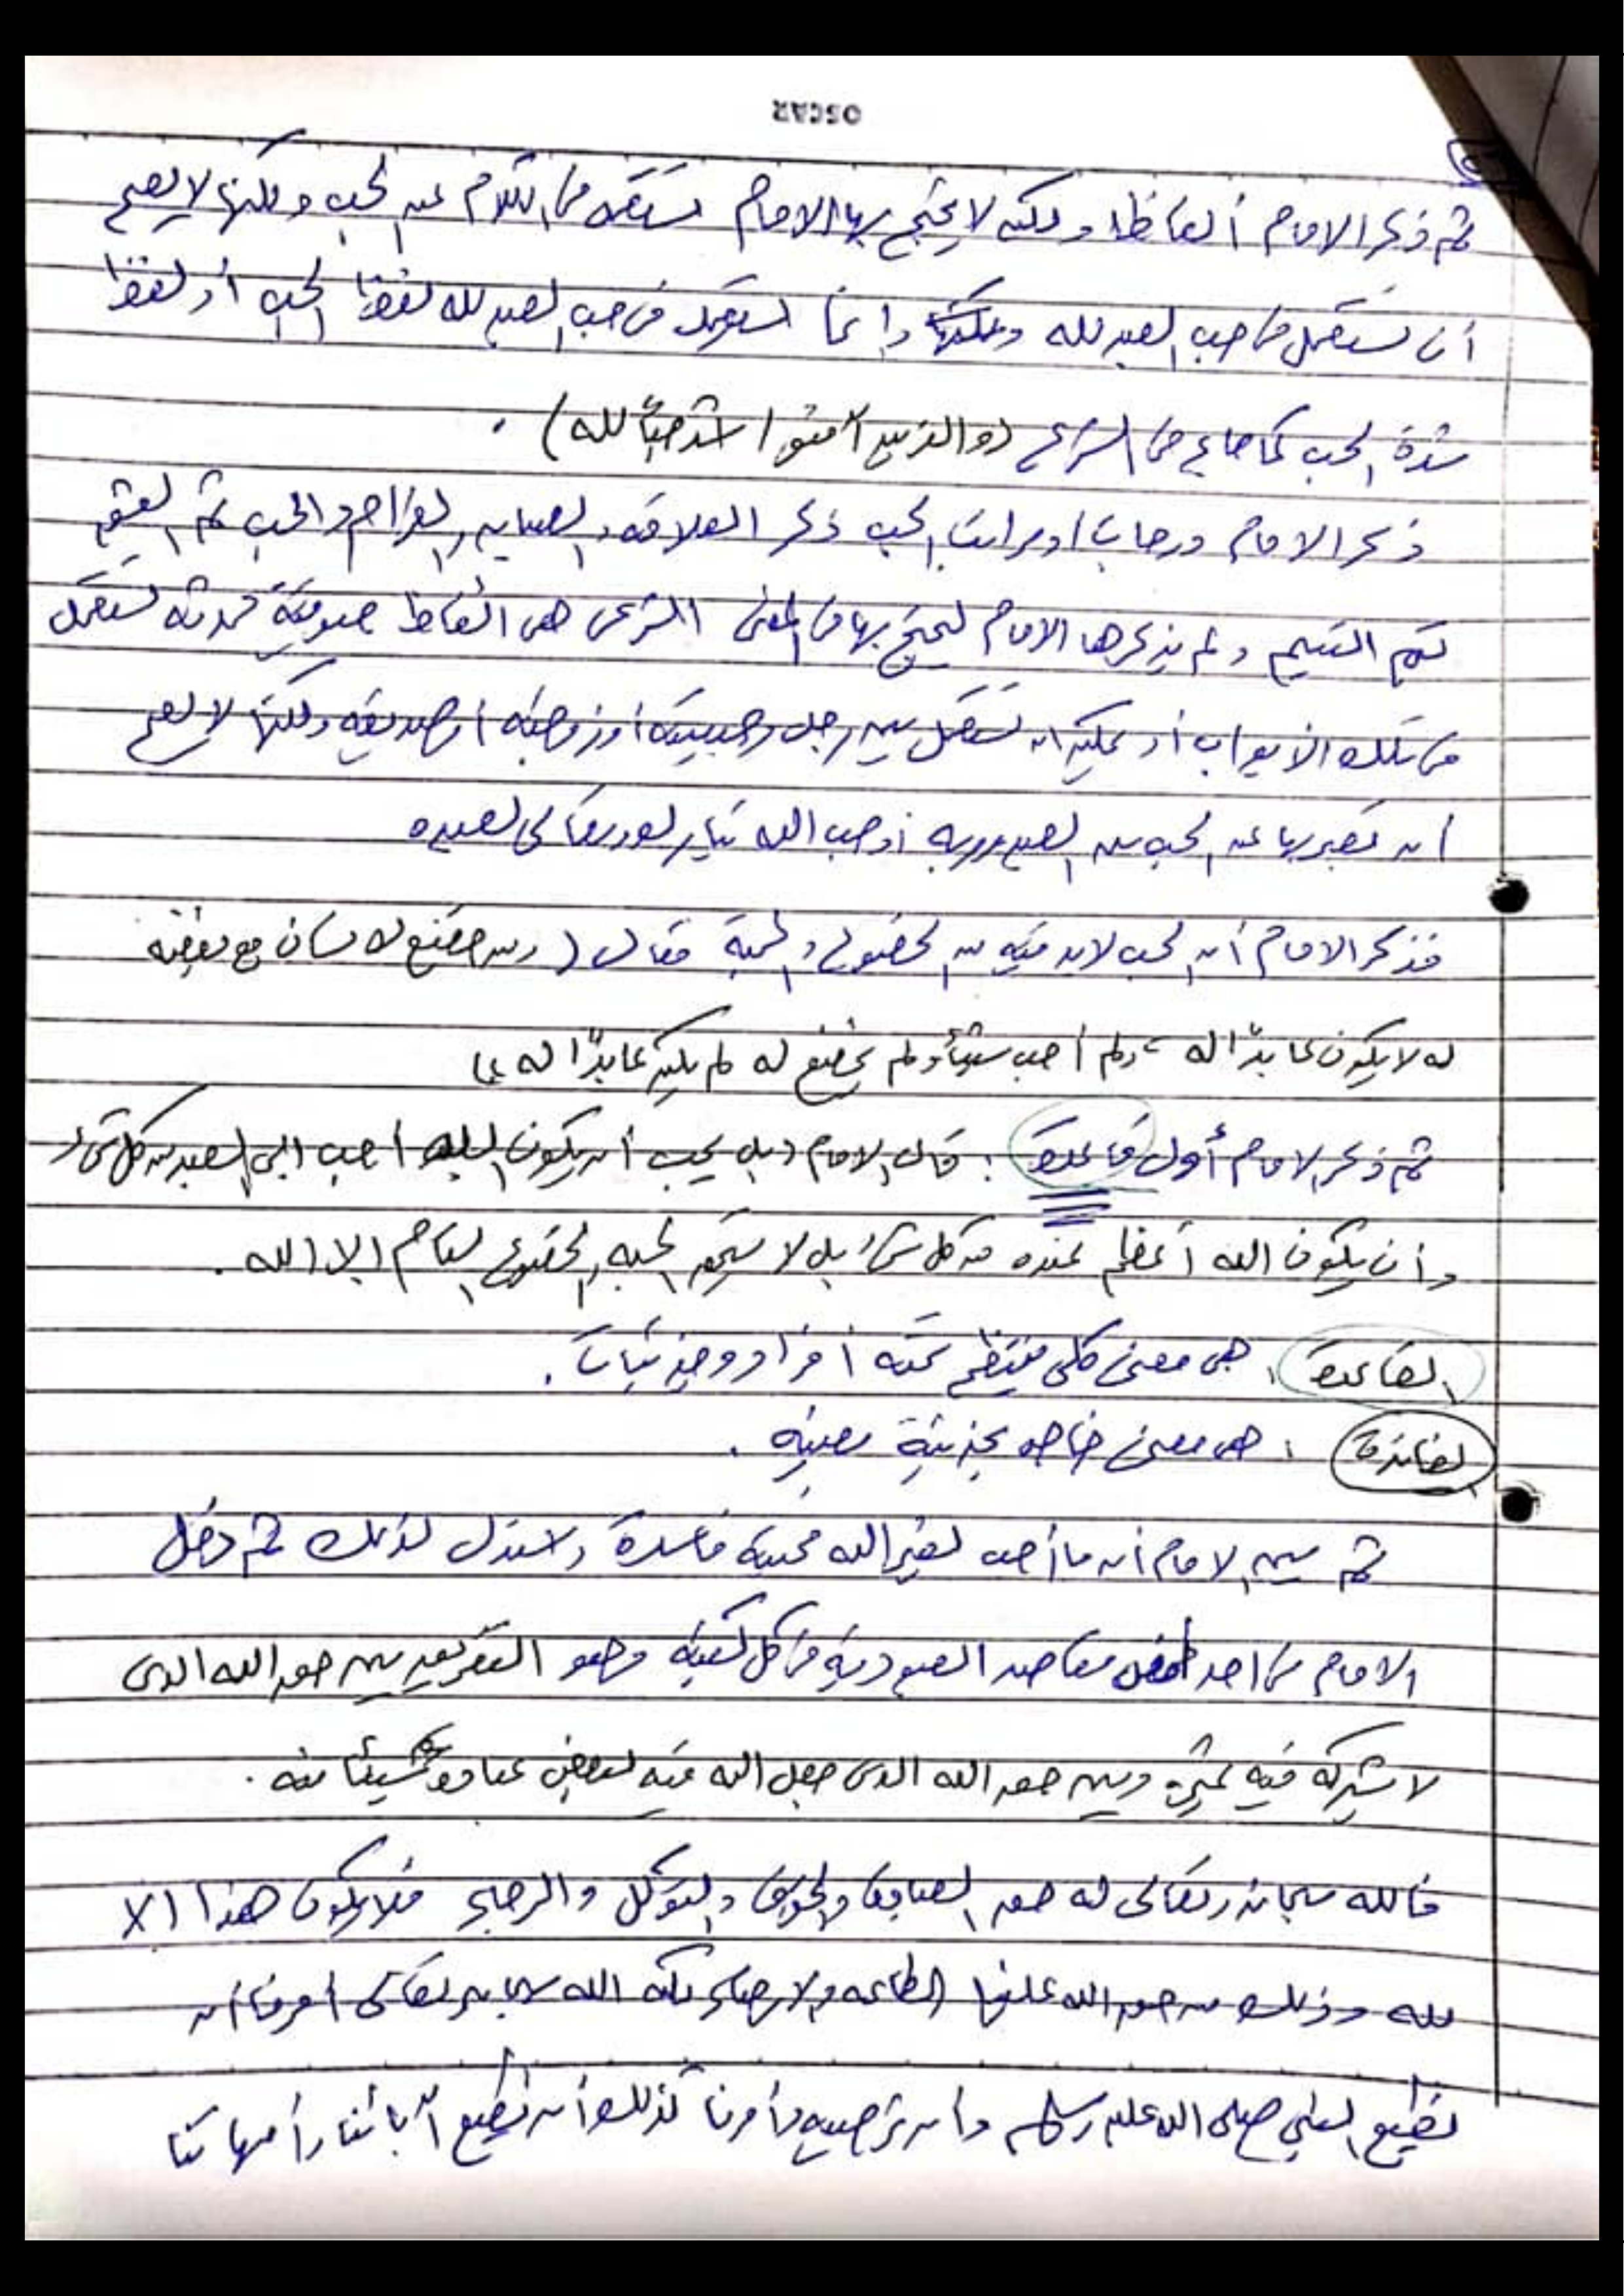 OSCAR
ثم ذكر الامام ألفاظا ولكنه لا يحتج بها الامام تستعمل في الكلام عن الحب ولكنها لا يصح
أن تستعمل في حب العبد لله وإنما تستعمل في حب العبد لله لفظ الحب أو لفظ
شدة الحب كما جاء في الشرع (والذين آمنوا أشد حبًا لله) .
ذكر الامام درجات أو مراتب الحب ذكر العلاقة والصبابه والغرام والحب ثم العشق
ثم التتيم ولم يذكرها الامام ليحتج بها في المعنى الشرعى هى ألفاظ صوفية محدثه تستعمل
فى تلك الأبواب أو يمكن ان تستعمل بين رجل وحبيبته أو زوجته أو صديقه ولكنها لا يصح
أن نعبر بها عن الحب بين العبد وربه أو حب الله تبارك وتعالى لعبده
فذكر الامام أن الحب لابد فيه من الخضوع والمحبة فقال ( ومن خضع لانسان مع بغضه
له لا يكون عابدًا له ، ولو أحب شيئًا ولم يخضع له لم يكن عابدًا له )
ثم ذكر الامام أول قاعدة : قال الامام ( بل يجب أن يكون الله أحب إلى العبد من كل شئ
وأن يكون الله أعظم عنده من كل شئ بل لا يستحق المحبه والخضوع التام إلا الله .
القاعدة : هى معنى كلى ينتظم تحته أفراد وجزئيات .
الفائدة : هى معنى خاص بجزئية معينه .
ثم بين الامام أن ما أحب لغير الله محبته فاسدة واستدل لذلك ثم دخل
الامام فى احد مقاصد العبودية فى كل كتبه وهو التفريق بين حق الله الذى
لا شركة فيه لغيره وبين حق الله الذى جعل الله فيه لبعض عباده شيئًا منه .
فالله سبحانه وتعالى له حق العبادة والخوف والتوكل والرجاء فلا يكون هذا إلا
لله وذلك من حق الله علينا الطاعه والارضاء لكن الله سبحانه وتعالى أمرنا أن
نطيع النبي صلى الله عليه وسلم وأن نرضيه وأمرنا كذلك أن نطيع آبائنا وأمهاتنا